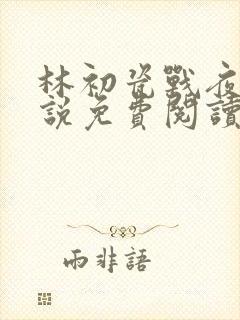 林初瓷戰夜
說免費閱讀
雨非語